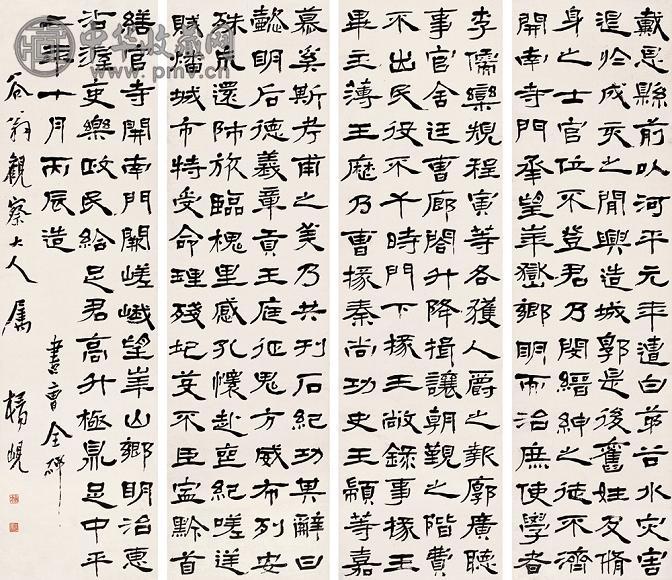 戴恩縣前以河平元年遭白茅谷水灾害
退於戌亥之閒興造城郭是後舊姓及脩
身之士官位不登君乃閔縉紳之徒不濟
開南寺門承望崋嶽鄉明而治庶使學者
李儒欒規程寅等各獲人爵之報廓廣聽
事官舍廷曹廊閣升降揖讓朝覲之階費
不出民役不干時門下掾王敞錄事掾王
畢主薄王歷乃曹掾秦尚功史王顓等嘉
慕奚斯考甫之美乃共刊石紀功其辭曰
懿明后德義章貢王庭征鬼方威布列安
殊荒還師旅臨槐里感孔懷赴喪紀嗟逆
賊燔城市特受命理殘圮芟不臣寍黔首
繕官寺開南門闕嵯峨望崋山鄉明治惠
沾渥吏樂政民給足君高升極鼎足中平
二年十月丙辰造
書曹全碑
谷翁觀察大人属 楊峴
中华收藏网
www.pmv.cn